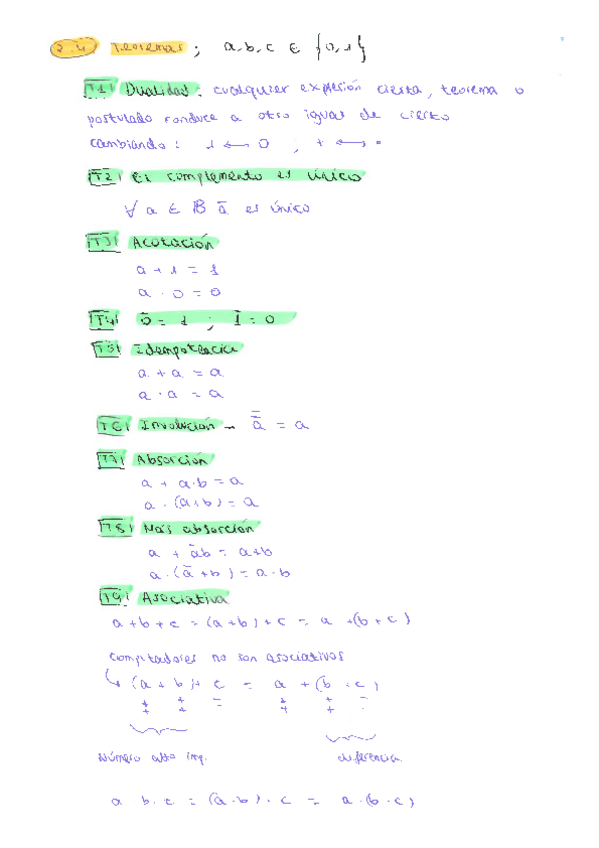 2.4 Teoremas ; a,b,c ∈ {0,1}
T1 Dualidad: cualquier expresión cierta, teorema o
postulado conduce a otro igual de cierto
cambiando: 1 ⟷ 0 ; + ⟷ ·
T2 El complemento es único
∀ a ∈ B ā es único
T3 Acotación
a + 1 = 1
a · 0 = 0
T4 0̄ = 1 ; 1̄ = 0
T5 Idempotencia
a + a = a
a · a = a
T6 Involución → a̿ = a
T7 Absorción
a + a·b = a
a · (a+b) = a
T8 Más absorción
a + āb = a+b
a·(ā+b) = a·b
T9 Asociativa
a+b+c = (a+b)+c = a+(b+c)
computadores no son asociativos
↳ (a + b)+ c = a + (b + c)
+ + − + + −
+ + + +
Número alto diferencia
a b·c = (a·b)·c = a·(b·c)